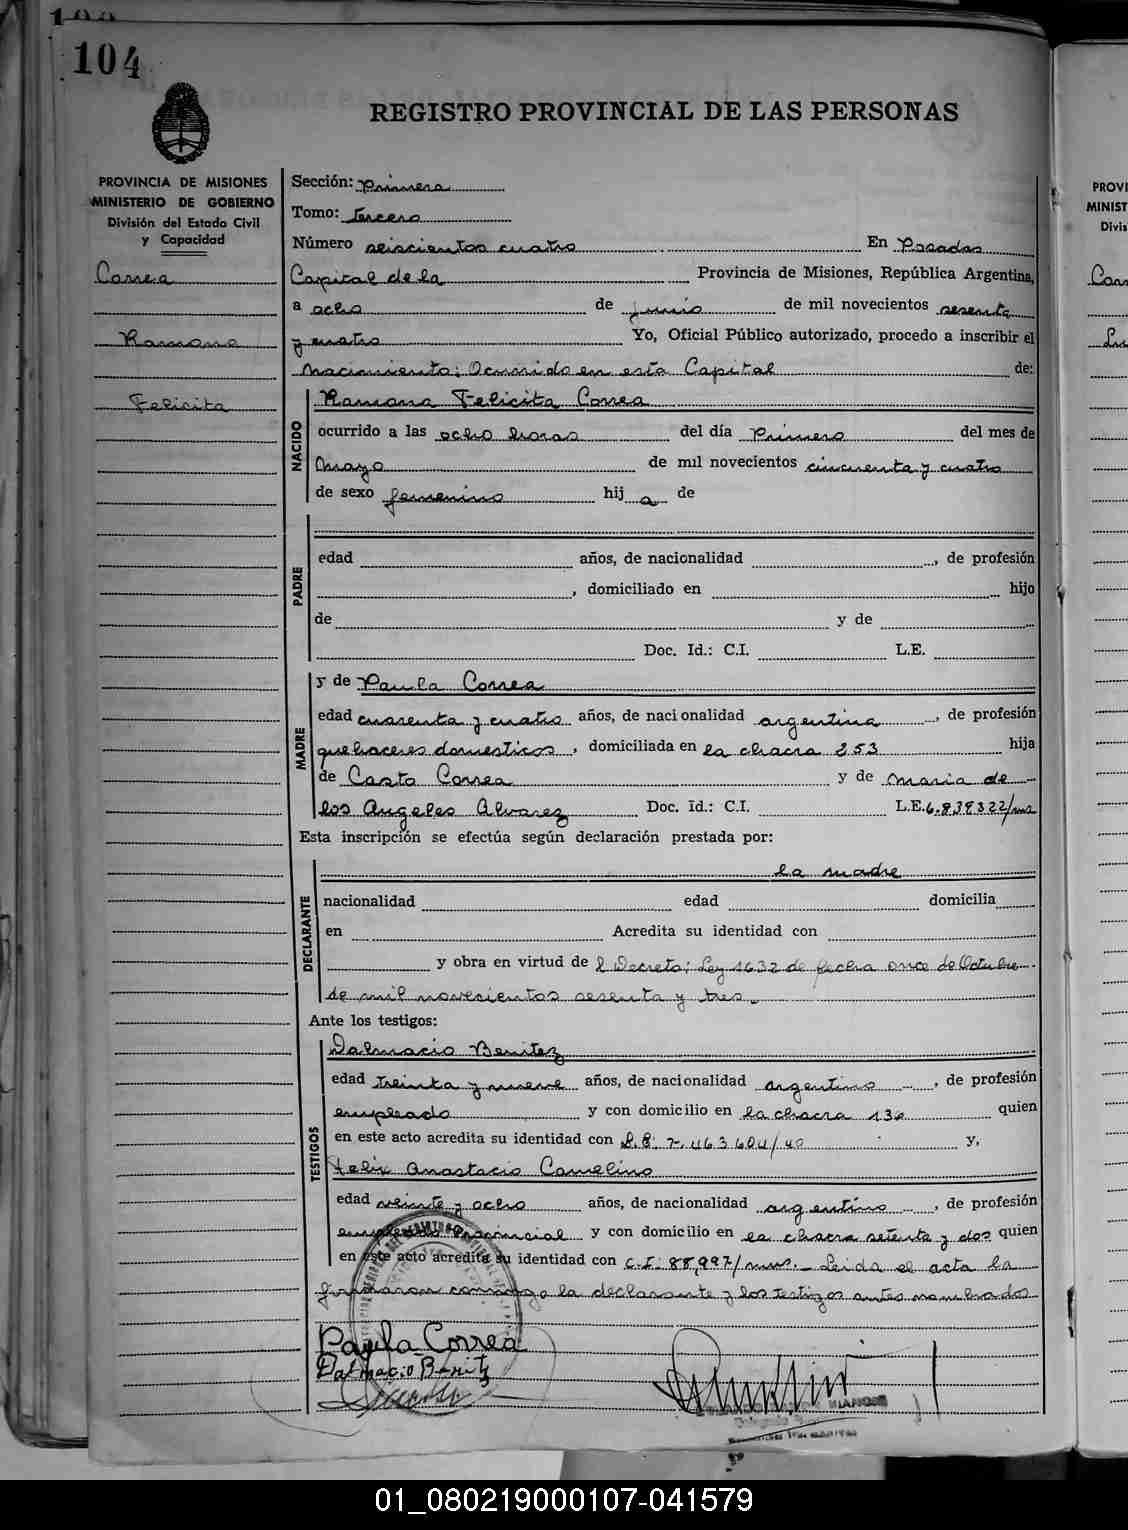 104
REGISTRO PROVINCIAL DE LAS PERSONAS
PROVINCIA DE MISIONES
MINISTERIO DE GOBIERNO
División del Estado Civil
y Capacidad
Correa
Ramona
Felicita
Sección: Primera
Tomo: tercero
Número seiscientos cuatro En Posadas
Capital de la Provincia de Misiones, República Argentina,
a ocho de junio de mil novecientos sesenta
y cuatro Yo, Oficial Público autorizado, procedo a inscribir el
nacimiento: Ocurrido en esta Capital de:
NACIDO
Ramona Felicita Correa
ocurrido a las ocho horas del día Primero del mes de
Mayo de mil novecientos cincuenta y cuatro
de sexo femenino hij a de
PADRE
edad años, de nacionalidad , de profesión
, domiciliado en hijo
de y de
Doc. Id.: C.I. L.E.
MADRE
y de Paula Correa
edad cuarenta y cuatro años, de nacionalidad argentina , de profesión
quehaceres domesticos , domiciliada en la chacra 253 hija
de Casto Correa y de Maria de
los Angeles Alvarez Doc. Id.: C.I. L.E. 6.839322/ms
Esta inscripción se efectúa según declaración prestada por:
DECLARANTE
la madre
nacionalidad edad domicilia
en Acredita su identidad con
y obra en virtud de l Decreto: Ley 1632 de fecha once de Octubre
de mil novecientos sesenta y tres.
Ante los testigos:
TESTIGOS
Dalmacio Benitez
edad treinta y nueve años, de nacionalidad argentino , de profesión
empleado y con domicilio en la chacra 136 quien
en este acto acredita su identidad con y,
Felix Anastacio Camelino
edad veinte y ocho años, de nacionalidad argentino , de profesión
empleado provincial y con domicilio en la chacra setenta y dos quien
en este acto acredita su identidad con C.I. 88,997/mns. Leida el acta la
firmaron conmigo la declarante y los testigos antes nombrados
Paula Correa
Dalmacio Benitz
PROVI
MINIST
Divis
01_080219000107-041579